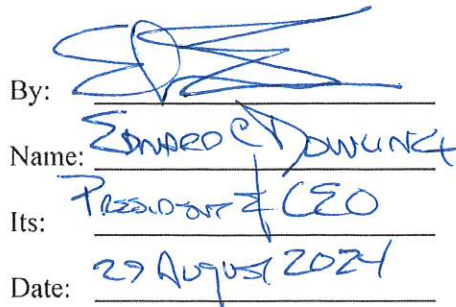 By:
Name: EDWARD C DOWLING
Its: PRESIDENT & CEO
Date: 29 AUGUST 2024